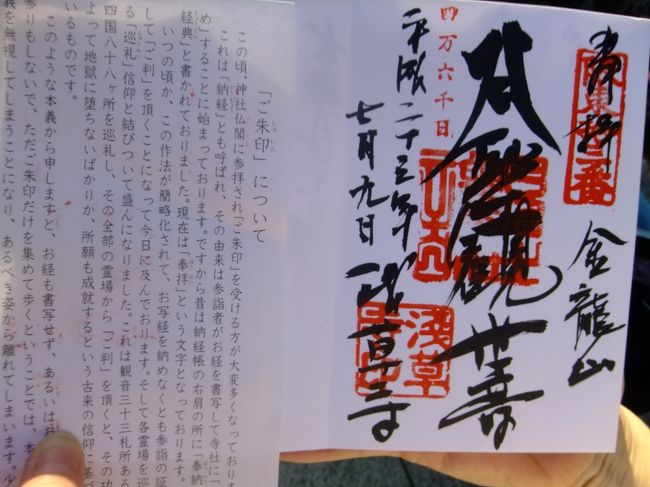 奉拝
坂東十三番
金龍山
聖観世音
四万六千日
平成二十五年
七月九日
浅草寺
浅草
「ご朱印」について
この頃、神社仏閣に参拝され「ご朱印」を受ける方が大変多くなっておりま
これは「納経」とも呼ばれ、その由来は参詣者がお経を書写して寺社に「
め」することに始まっております。ですから昔は納経帳の右肩の所に「奉納
経典」と書かれておりました。現在は「奉拝」という文字となっております。
いつの頃か、この作法が簡略化されて、お写経を納めなくとも参詣の証
して「ご判」を頂くことになって今日に及んでおります。そして各霊場を巡
る「巡礼」信仰と結びついて盛んになりました。これは観音三十三札所ある
四国八十八ヶ所を巡礼し、その全部の霊場から「ご判」を頂くと、その功
よって地獄に堕ちないばかりか、所願も成就するという古来の信仰に基づ
いるものです。
このような本義から申しますと、お経も書写せず、あるいはお
参りもしないで、ただご朱印だけを集めて歩くということでは、本
義を無視してしまうことになり、あるべき姿から離れてしまいます。少